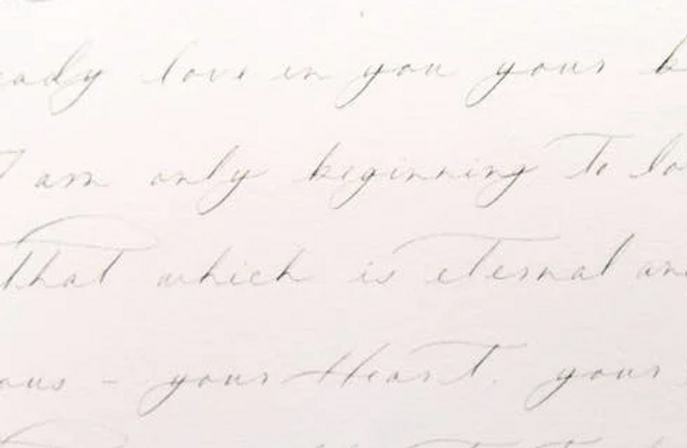 eady love in you your b
I am only beginning to lo
that which is eternal an
ous - your Heart. your